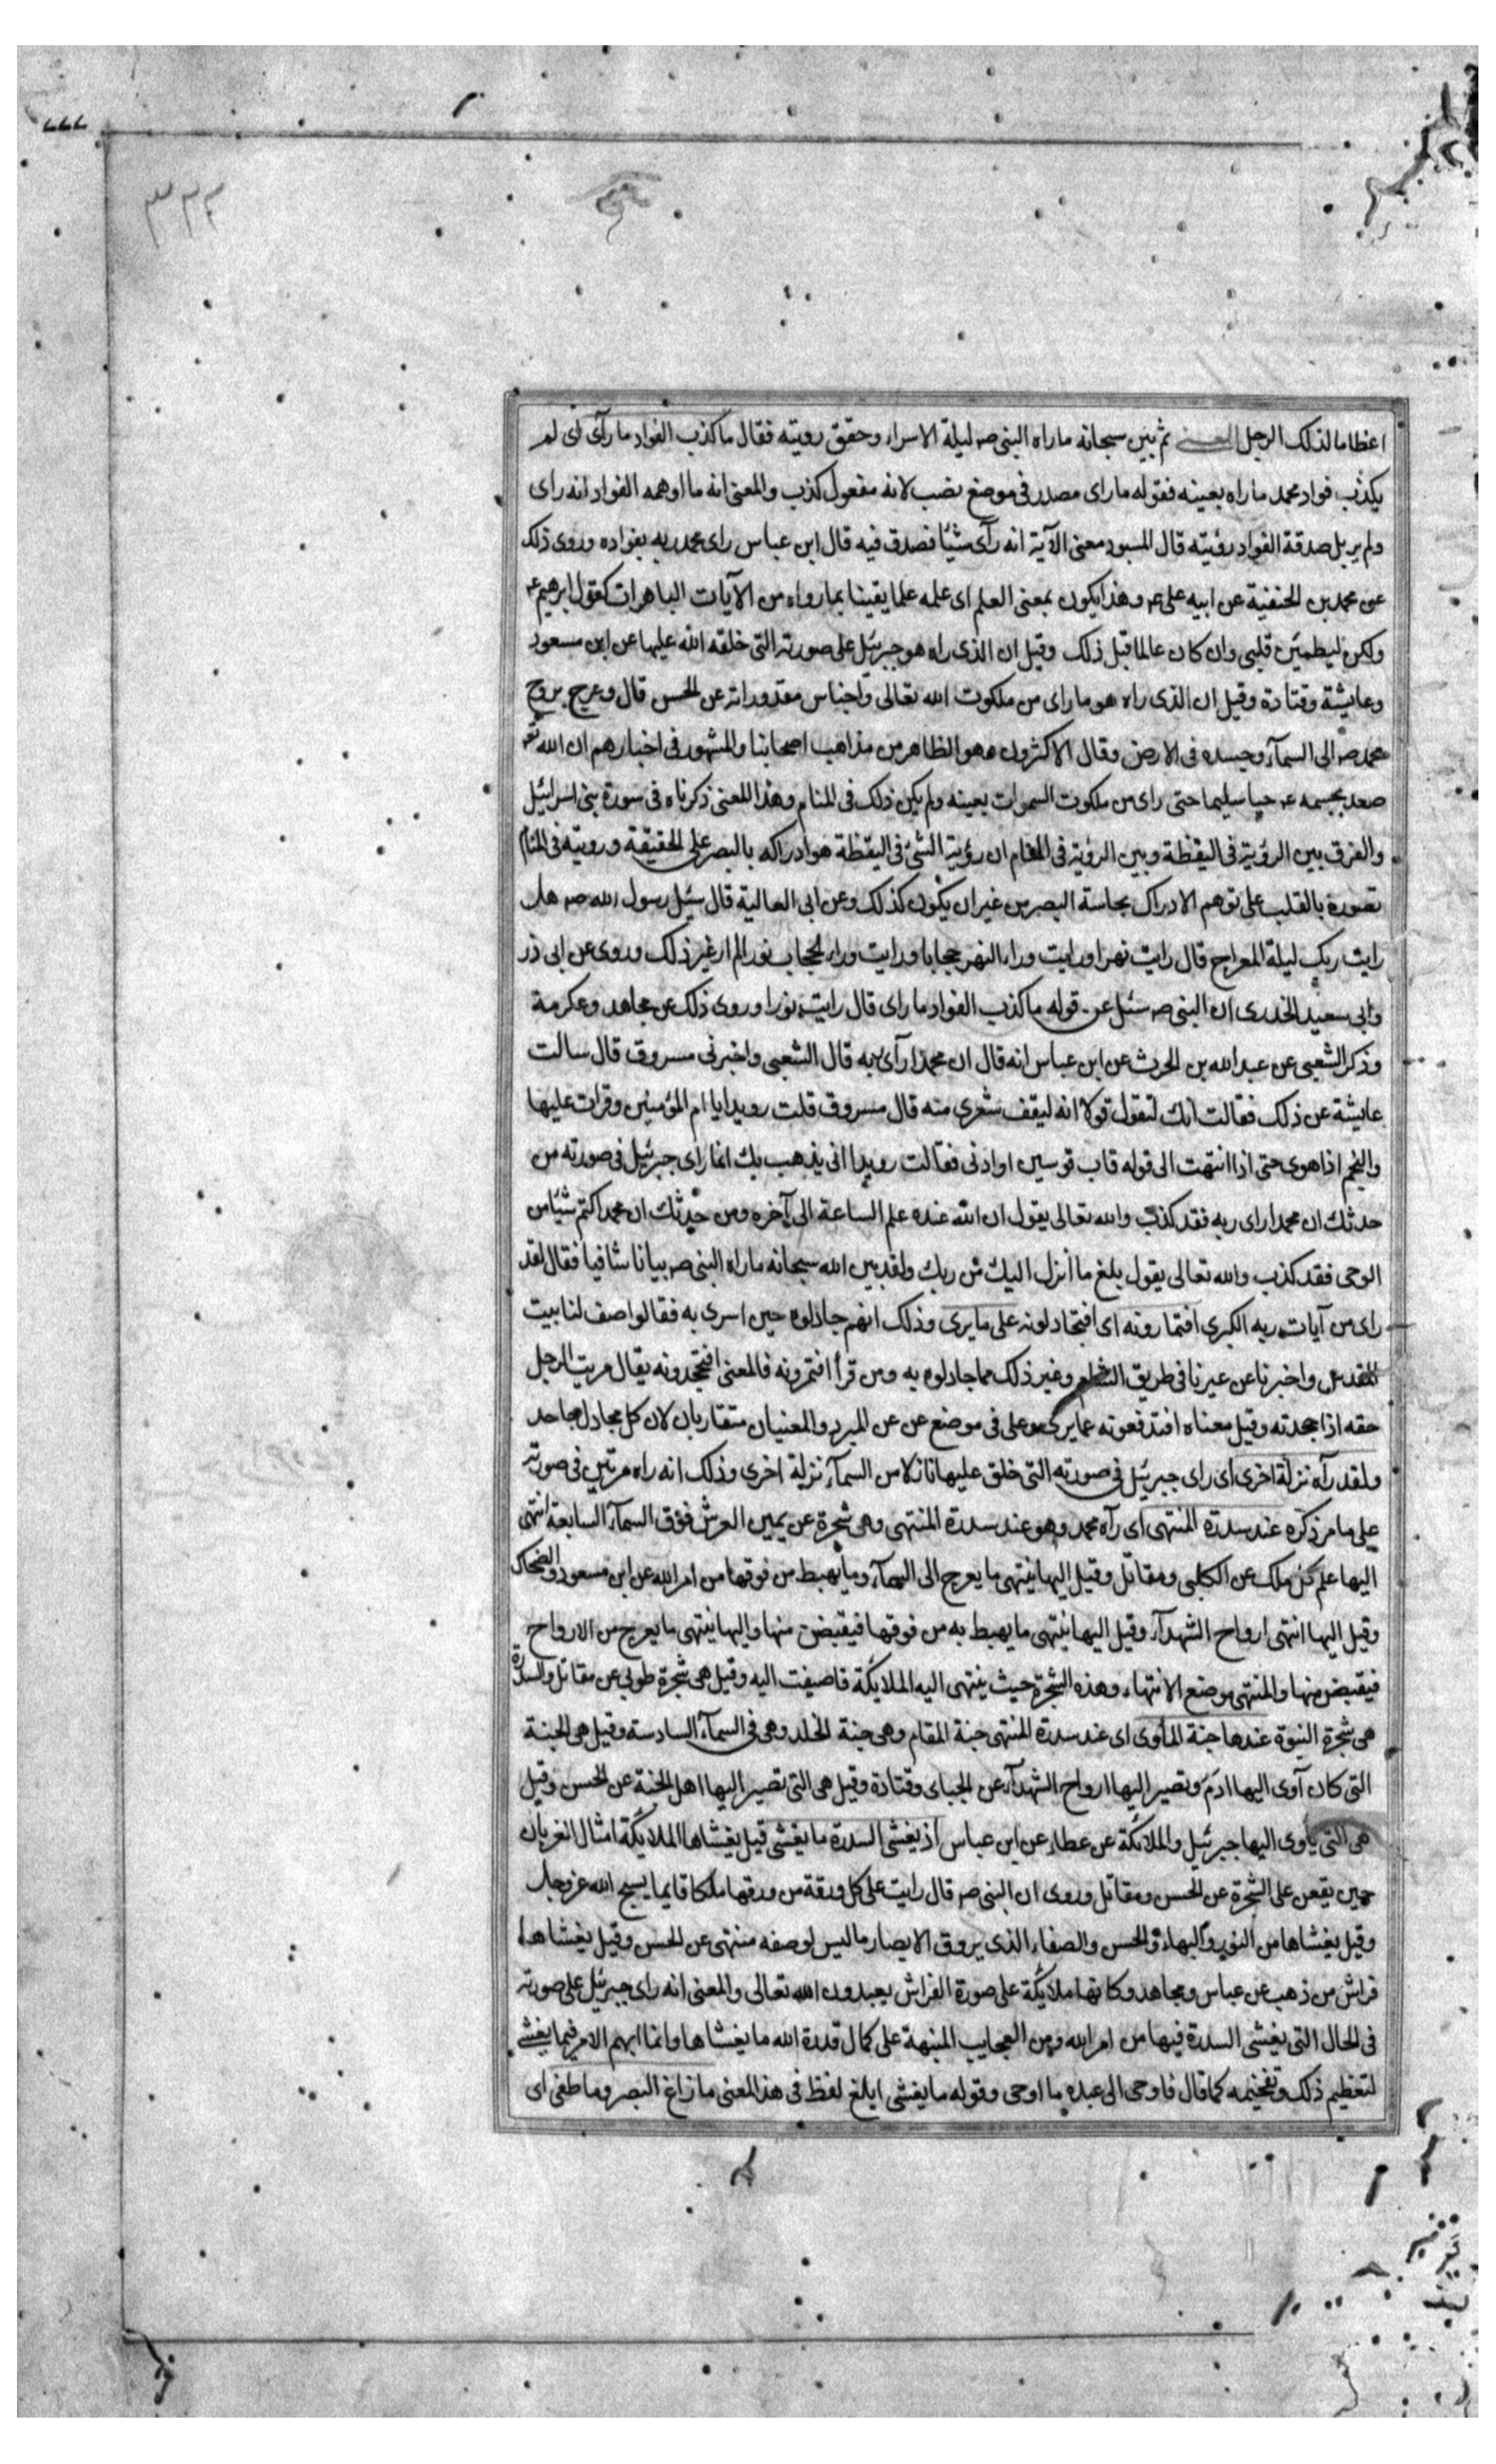 ٣٢٢
اعظاما لذلك الرجل المعنى ثم بين سبحانه ماراه النبى صه ليلة الاسراء وحقق رويته فقال ماكذب الفواد ما رآى اى لم
يكذب فواد محمد ماراه بعينه فقوله ماراى مصدر فى موضع نصب لانه مفعول كذب والمعنى انه ما اوهمه الفواد انه راى
ولم ير بل صدقة الفواد رؤيته قال المبرد معنى الآية انه رآى شيئا فصدق فيه قال ابن عباس راى محمد ربه بفواده وروى ذلك
عن محمد بن الحنفية عن ابيه على عه وهذا يكون بمعنى العلم اى علمه علما يقينا بما رواه من الآيات الباهرات كقول ابرهيم عه
ولكن ليطمئن قلبى وان كان عالما قبل ذلك وقيل ان الذى راه هو جبرئيل على صورته التى خلقه الله عليها عن ابن مسعود
وعايشة وقتادة وقيل ان الذى راه هو ماراى من ملكوت الله تعالى واجناس مقدوراته عن الحسن قال وعرج بروح
محمد صه الى السمآء وجسده فى الارض وقال الاكثرون وهو الظاهر من مذاهب اصحابنا والمشهور فى اخبارهم ان الله تعه
صعد بجسمه عه حيا سليما حتى راى من ملكوت السموات بعينه ولم يكن ذلك فى المنام وهذا المعنى ذكرناه فى سورة بنى اسرائيل
والفرق بين الرؤية فى اليقظة وبين الرؤية فى المنام ان رؤية الشئ فى اليقظة هو ادراكه بالبصر على الحقيقة ورويته فى المنام
تصوره بالقلب على توهم الادراك بحاسة البصر من غير ان يكون كذلك وعن ابى العالية قال سئل رسول الله صه هل
رايت ربك ليلة المعراج قال رايت نهرا ورايت وراء النهر حجابا ورايت وراء الحجاب نورا لم ار غير ذلك وروى عن ابى ذر
وابى سعيد الخدرى ان النبى صه سئل عن قوله ماكذب الفواد ماراى قال رايت نورا وروى ذلك عن مجاهد وعكرمة
وذكر الشعبى عن عبد الله بن الحرث عن ابن عباس انه قال ان محمدا رآى ربه قال الشعبى واخبرنى مسروق قال سالت
عايشة عن ذلك فقالت انك لتقول قولا انه ليقف شعرى منه قال مسروق قلت رويدا يا ام المؤمنين وقرات عليها
والنجم اذا هوى حتى اذا انتهت الى قوله قاب قوسين او ادنى فقالت رويدا انى يذهب بك انما راى جبرئيل فى صورته من
حدثك ان محمدا راى ربه فقد كذب والله تعالى يقول ان الله عنده علم الساعة الى آخره ومن حدثك ان محمدا كتم شيئا من
الوحى فقد كذب والله تعالى يقول بلغ ما انزل اليك من ربك ولقد بين الله سبحانه ماراه النبى صه بيانا شافيا فقال لقد
راى من آيات ربه الكبرى افتمارونه اى افتجادلونه على مايرى وذلك انهم جادلوه حين اسرى به فقالوا صف لنا بيت
المقدس واخبرنا عن عيرنا فى طريق الشام وغير ذلك مما جادلوه به ومن قرأ افتمرونه فالمعنى افتجحدونه يقال مريت الرجل
حقه اذا جحدته وقيل معناه افتدفعونه عمايرى وعلى فى موضع عن عن المبرد والمعنيان متقاربان لان كل مجادل جاحد
ولقد رآه نزلة اخرى اى راى جبرئيل فى صورته التى خلق عليها نازلا من السمآء نزلة اخرى وذلك انه راه مرتين فى صورته
على ما مر ذكره عند سدرة المنتهى اى رآه محمد وهو عند سدرة المنتهى وهى شجرة عن يمين العرش فوق السمآء السابعة انتهى
اليها علم كل ملك عن الكلبى ومقاتل وقيل اليها ينتهى ما يعرج الى السمآء وما يهبط من فوقها من امر الله عن ابن مسعود والضحاك
وقيل اليها انتهى ارواح الشهدآء وقيل اليها ينتهى ما يهبط به من فوقها فيقبض منها واليها ينتهى ما يعرج من الارواح
فيقبض منها والمنتهى موضع الانتهاء وهذه الشجرة حيث ينتهى اليه الملايكة فاضيفت اليه وقيل هى شجرة طوبى عن مقاتل والسدرة
هى شجرة النبوة عندها جنة المأوى اى عند سدرة المنتهى جنة المقام وهى جنة الخلد وهى فى السمآء السادسة وقيل هى الجنة
التى كان آوى اليها ادم وتصير اليها ارواح الشهدآء عن الجباى وقتادة وقيل هى التى تصير اليها اهل الجنة عن الحسن وقيل
هى التى ياوى اليها جبرئيل والملائكة عن عطاء عن ابن عباس اذ يغشى السدرة ما يغشى قيل يغشاها الملايكة امثال الغربان
حين يقعن على الشجرة عن الحسن ومقاتل وروى ان النبى صه قال رايت على كل ورقة من ورقها ملكا قايما يسبح الله عز وجل
وقيل يغشاها من النور والبهاء والحسن والصفاء الذى يروق الابصار ما ليس لوصفه منتهى عن الحسن وقيل يغشاها
فراش من ذهب عن عباس ومجاهد وكانها ملايكة على صورة الفراش يعبدون الله تعالى والمعنى انه راى جبرئيل على صورته
فى الحال التى يغشى السدرة فيها من امر الله ومن العجايب المنبهة على كمال قدرة الله ما يغشاها وانما ابهم الامر فيما يغشى
لتعظيم ذلك وتفخيمه كما قال فاوحى الى عبده ما اوحى وقوله ما يغشى ابلغ لفظ فى هذا المعنى ما زاغ البصر وما طغى اى